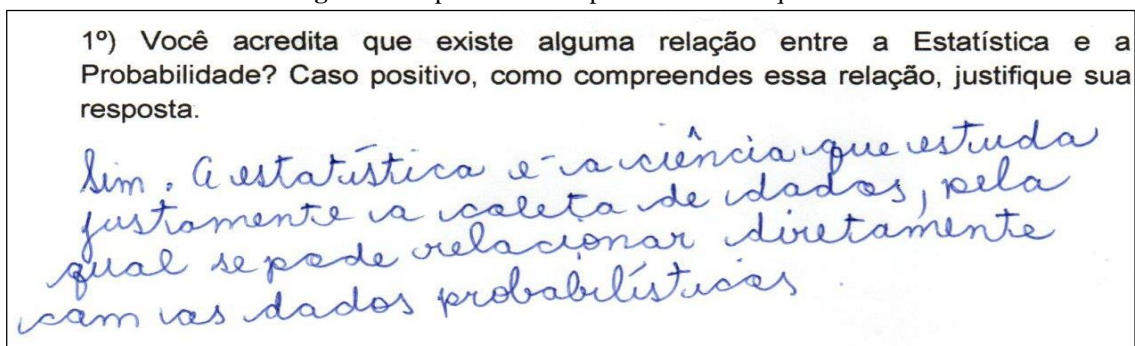 1º) Você acredita que existe alguma relação entre a Estatística e a
Probabilidade? Caso positivo, como compreendes essa relação, justifique sua
resposta.
Sim. A estatística é a ciência que estuda
justamente a coleta de dados, pela
qual se pode relacionar diretamente
com os dados probabilísticos